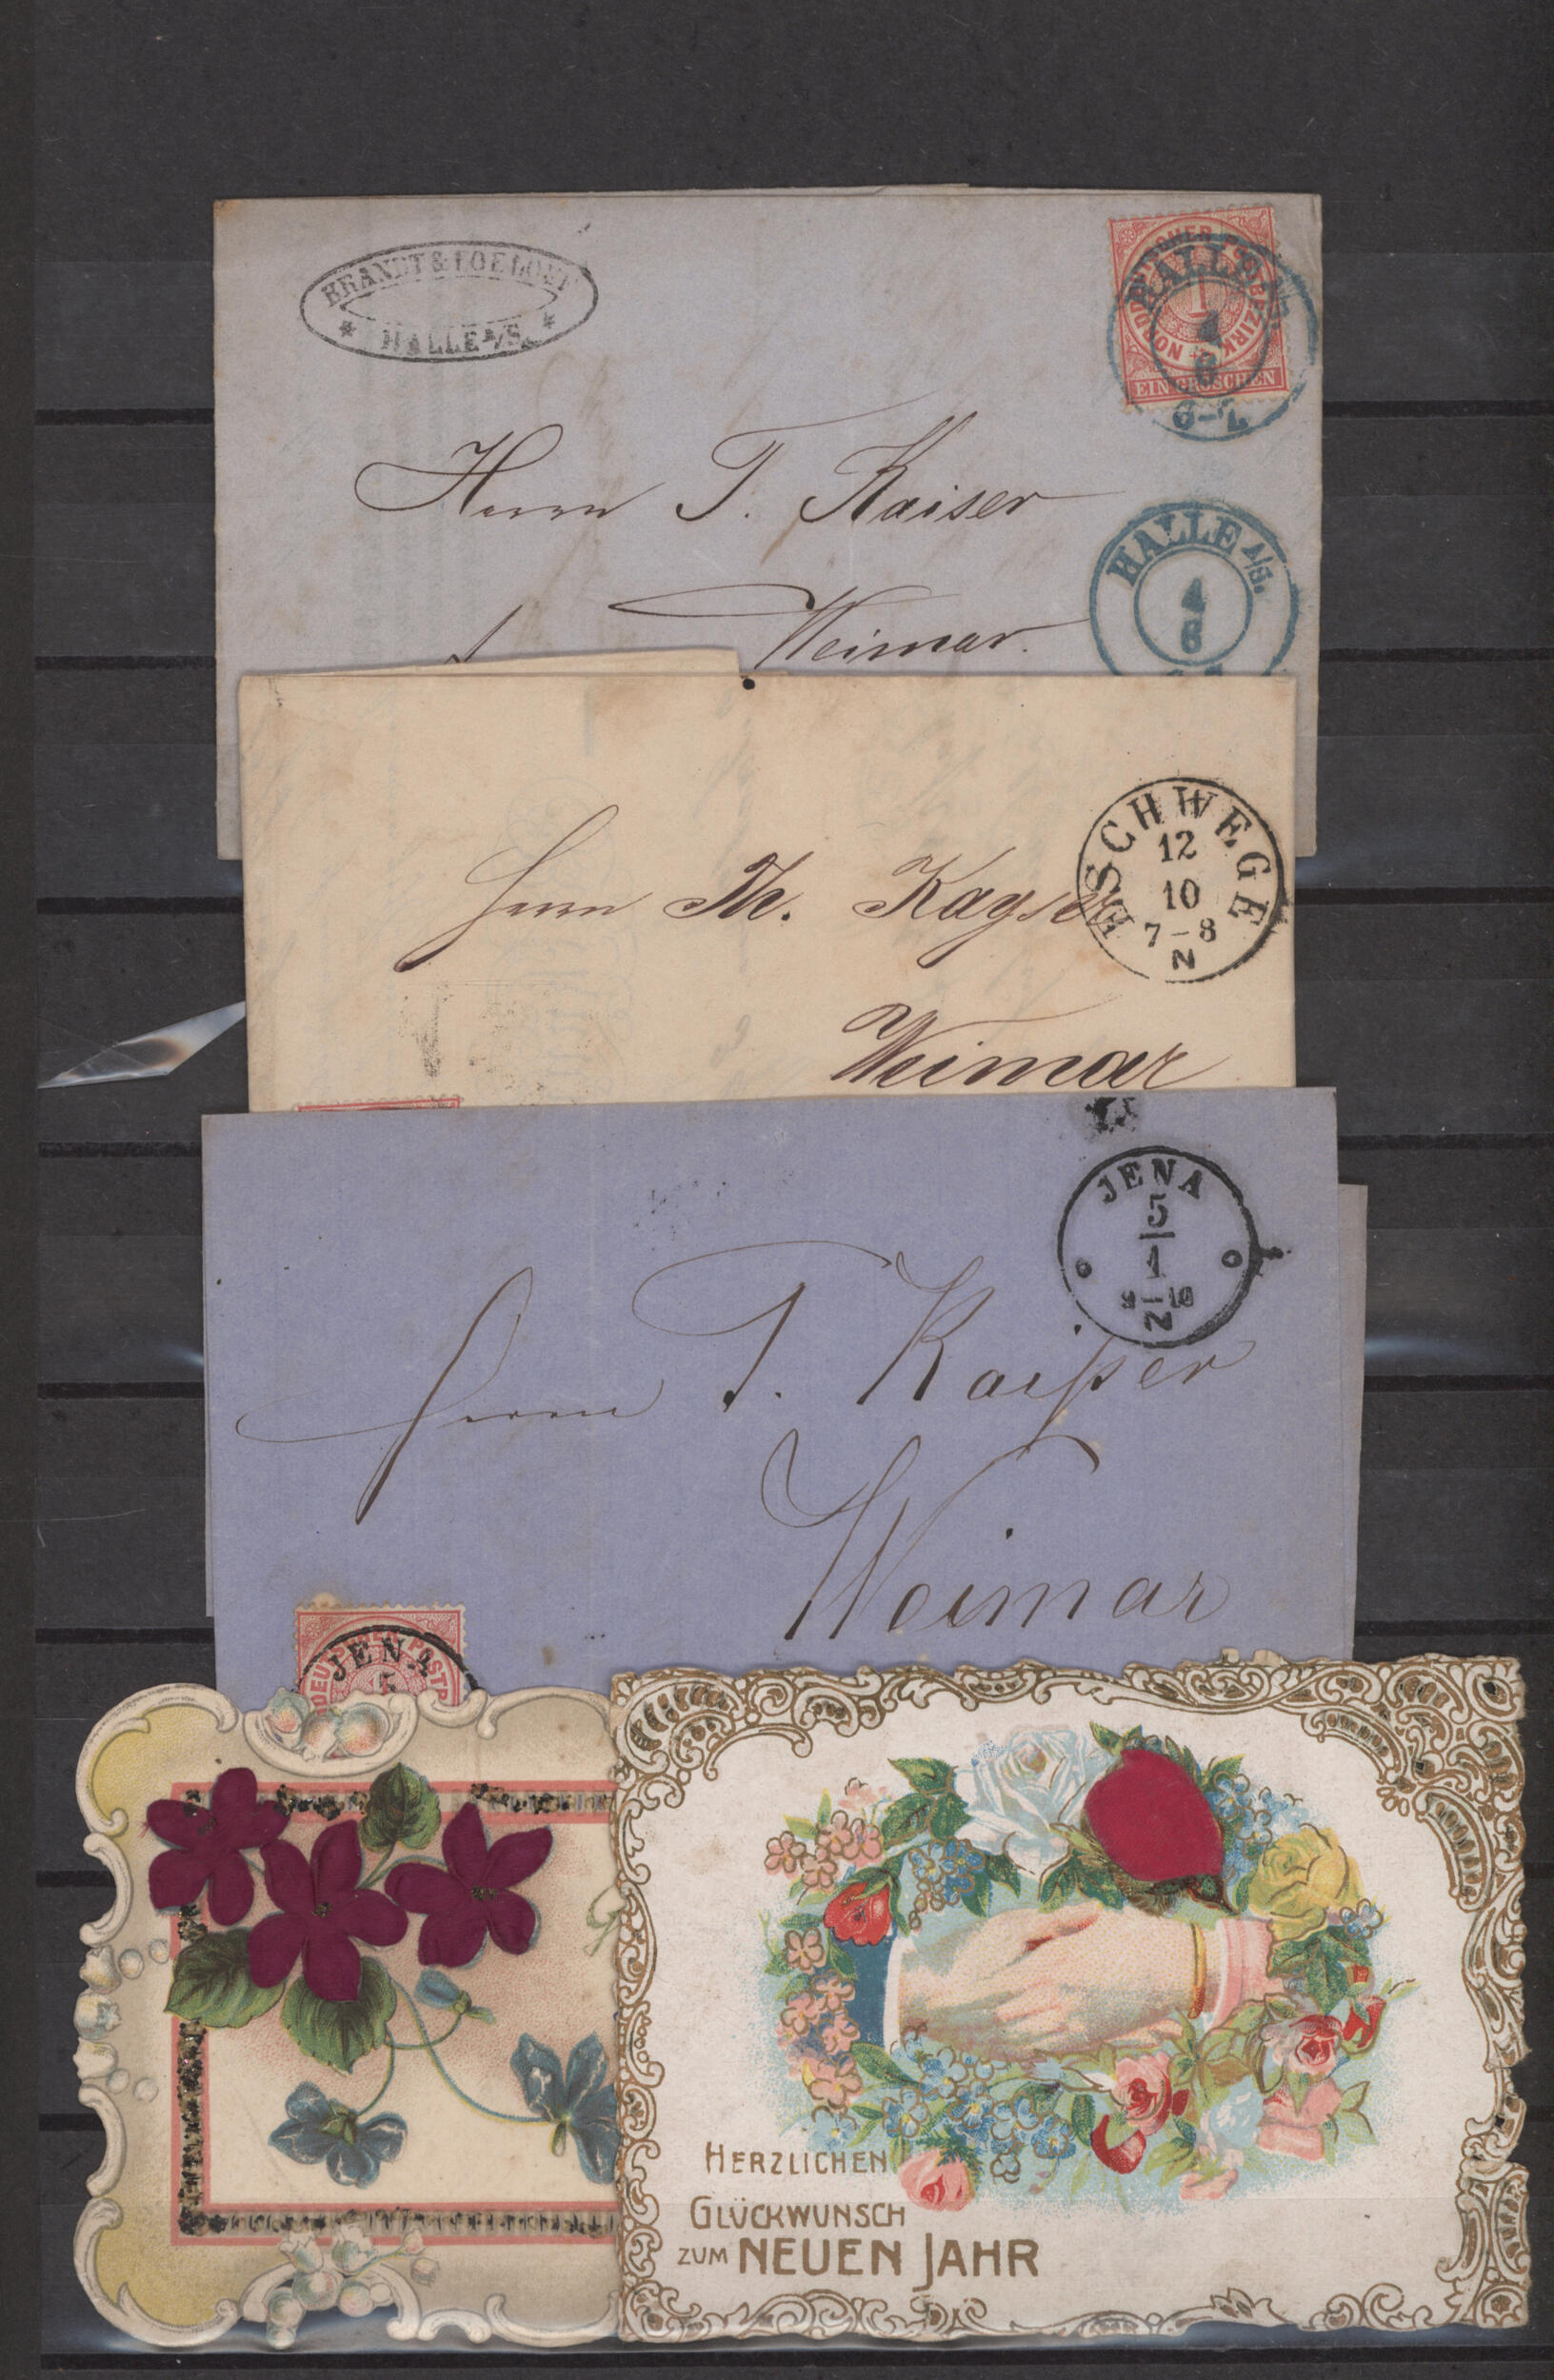 BRANDT & LOELOFF
* HALLE A/S. *
NORDDEUTSCHER POSTBEZIRK
1
EIN GROSCHEN
HALLE A/S.
4
6
6-7
Herrn T. Kaiser
Weimar.
HALLE A/S.
4
6
Herrn Th. Kayser
Weimar
ESCHWEGE
12
10
7-8
N
JENA
5
4
9-10
N
Herrn T. Kaißer
Weimar
JENA
5
HERZLICHEN
GLÜCKWUNSCH
ZUM NEUEN JAHR